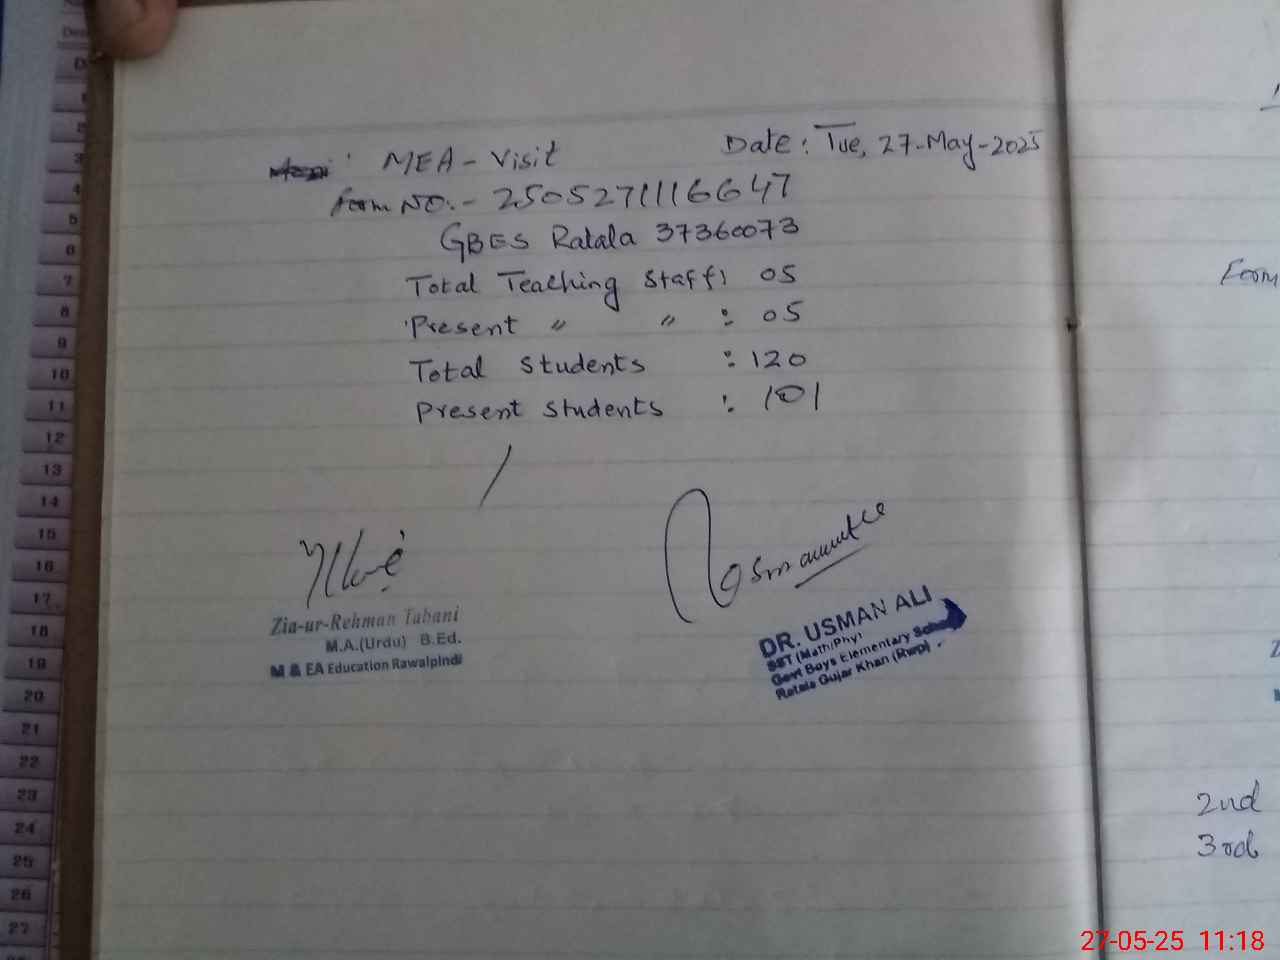 MEA - Visit
Date: Tue, 27-May-2025
Form NO.- 2505271116647
GBES Ratala 37360073
Total Teaching Staff: 05
Present " " : 05
Total Students : 120
Present Students : 101
Zia-ur-Rehman Tabani
M.A.(Urdu) B.Ed.
M & EA Education Rawalpindi
DR. USMAN ALI
SST (Math/Phy)
Govt Boys Elementary School
Ratala Gujar Khan (Rwp)
Form
2nd
3rd
1
2
3
4
5
6
7
8
9
10
11
12
13
14
15
16
17
18
19
20
21
22
23
24
25
26
27
27-05-25 11:18